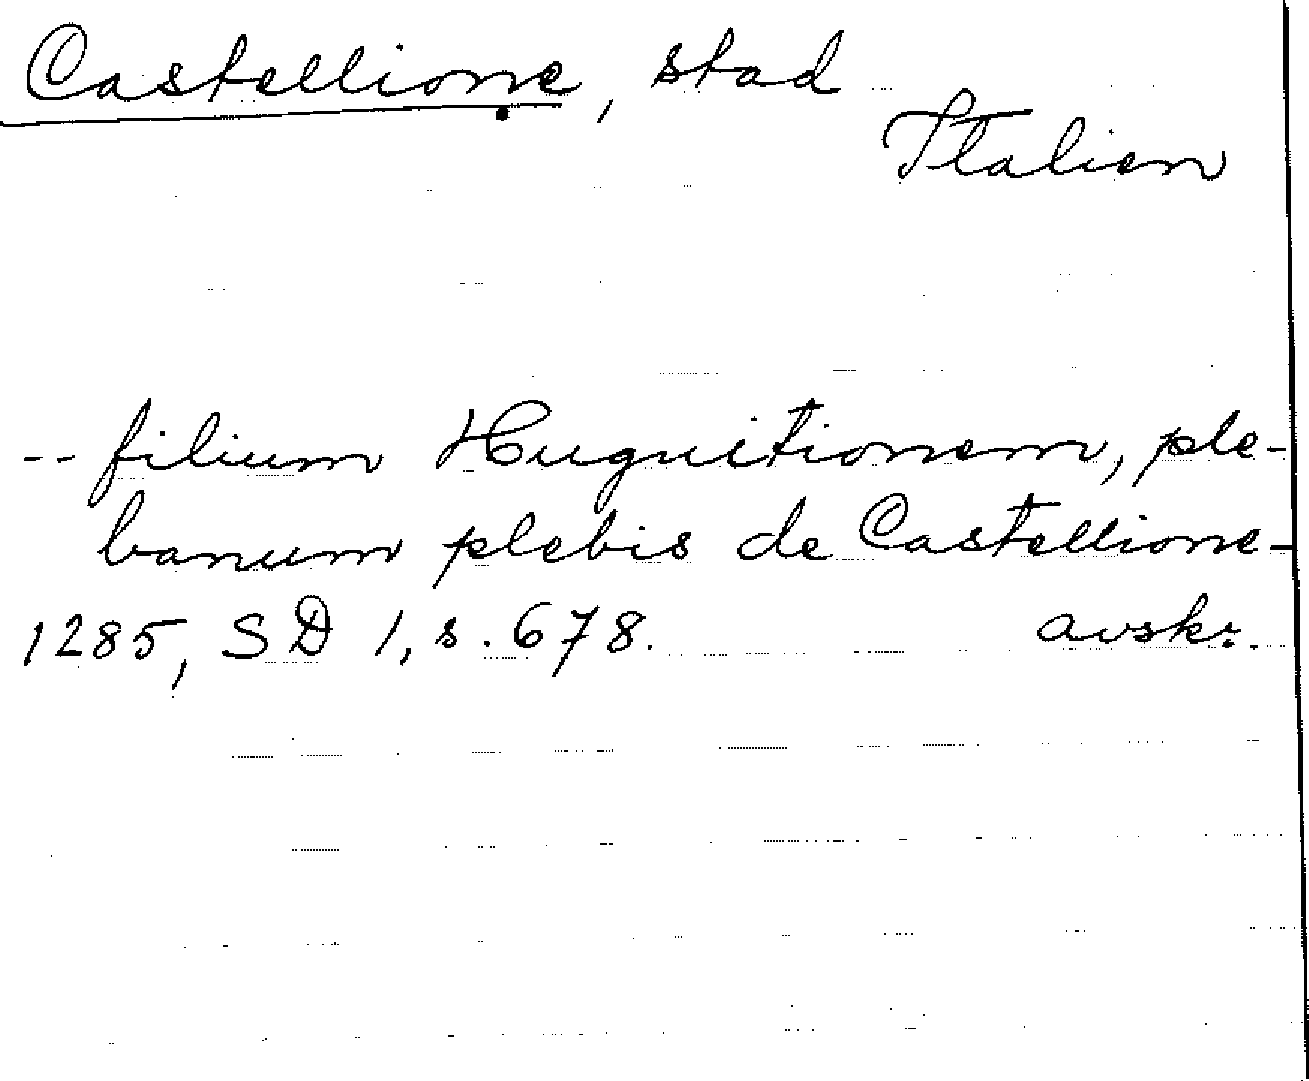 Castellione, stad
Italien
-- filium Huguitionem, ple-
banum plebis de Castellione-
1285, SD 1, s. 678. avskr.